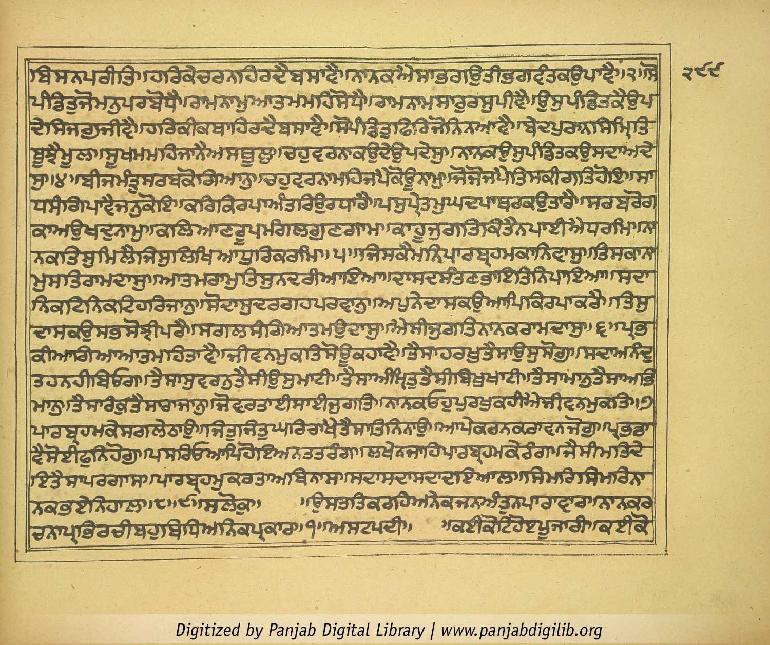 ਬਿਸਨਪਰੀਤਿ॥ਹਰਿਕੇਚਰਨਹਿਰਦੈਬਸਾਵੈ॥ਨਾਨਕਐਸਾਭਗਉਤੀਭਗਵੰਤਕਉਪਾਵੈ॥੩॥ਸੋ ੨੯੯
ਪੰਡਿਤੁਜੋਮਨੁਪਰਬੋਧੈ॥ਰਾਮਨਾਮੁਆਤਮਮਹਿਸੋਧੈ॥ਰਾਮਨਾਮਸਾਰੁਰਸੁਪੀਵੈ॥ਉਸੁਪੰਡਿਤਕੈਉਪ
ਦੇਸਿਜਗੁਜੀਵੈ॥ਹਰਿਕੀਕਥਾਹਿਰਦੈਬਸਾਵੈ॥ਸੋਪੰਡਿਤੁਫਿਰਿਜੋਨਿਨਆਵੈ॥ਬੇਦਪੁਰਾਨਸਿਮ੍ਰਿਤਿ
ਬੂਝੈਮੂਲਾ॥ਸੂਖਮਮਹਿਜਾਨੈਅਸਥੂਲੁ॥ਚਹੁਵਰਨਾਕਉਦੇਉਪਦੇਸੁ॥ਨਾਨਕਉਸੁਪੰਡਿਤਕਉਸਦਾਅਦੇ
ਸੁ॥੪॥ਬੀਜਮੰਤ੍ਰੁਸਰਬਕੋਗਿਆਨੁ॥ਚਹੁਵਰਨਾਮਹਿਜਪੈਕੋਊਨਾਮੁ॥ਜੋਜੋਜਪੈਤਿਸਕੀਗਤਿਹੋਇ॥ਸਾ
ਧਸੰਗਿਪਾਵੈਜਨੁਕੋਇ॥ਕਰਿਕਿਰਪਾਅੰਤਰਿਉਰਧਾਰੈ॥ਪਸੁਪ੍ਰੇਤਮੁਘਦਪਾਥਰਕਉਤਾਰੈ॥ਸਰਬਰੋਗ
ਕਾਅਉਖਦੁਨਾਮੁ॥ਕਲਿਆਣਰੂਪਮੰਗਲਗੁਣਗਾਮ॥ਕਾਹੂਜੁਗਤਿਕਿਤੈਨਪਾਈਐਧਰਮਿ॥ਨਾ
ਨਕਤਿਸੁਮਿਲੈਜਿਸੁਲਿਖਿਆਧੁਰਿਕਰਮਿ॥੫॥ਜਿਸਕੈਮਨਿਪਾਰਬ੍ਰਹਮਕਾਨਿਵਾਸੁ॥ਤਿਸਕਾਨਾ
ਮੁਸਤਿਰਾਮਦਾਸੁ॥ਆਤਮਰਾਮੁਤਿਸੁਨਦਰੀਆਇਆ॥ਦਾਸਦਸੰਤਣਭਾਇਤਿਨਿਪਾਇਆ॥ਸਦਾ
ਨਿਕਟਿਨਿਕਟਿਹਰਿਜਾਨੁ॥ਸੋਦਾਸੁਦਰਗਹਪਰਵਾਨੁ॥ਅਪੁਨੇਦਾਸਕਉਆਪਿਕਿਰਪਾਕਰੈ॥ਤਿਸੁ
ਦਾਸਕਉਸਭਸੋਝੀਪਰੈ॥ਸਗਲਸੰਗਿਆਤਮਉਦਾਸੁ॥ਐਸੀਜੁਗਤਿਨਾਨਕਰਾਮਦਾਸੁ॥੬॥ਪ੍ਰਭ
ਕੀਆਗਿਆਆਤਮਹਿਤਾਵੈ॥ਜੀਵਨਮੁਕਤਿਸੋਊਕਹਾਵੈ॥ਤੈਸਾਹਰਖੁਤੈਸਾਉਸੁਸੋਗੁ॥ਸਦਾਅਨੰਦੁ
ਤਹਨਹੀਬਿਓਗ॥ਤੈਸਾਸੁਵਰਨੁਤੈਸੀਉਸੁਮਾਟੀ॥ਤੈਸਾਅੰਮ੍ਰਿਤੁਤੈਸੀਬਿਖੁਖਾਟੀ॥ਤੈਸਾਮਾਨੁਤੈਸਾਅਭਿ
ਮਾਨੁ॥ਤੈਸਾਰੰਕੁਤੈਸਾਰਾਜਾਨੁ॥ਜੋਵਰਤਾਈਸਾਈਜੁਗਤਿ॥ਨਾਨਕਓਹੁਪੁਰਖੁਕਹੀਐਜੀਵਨਮੁਕਤਿ॥੭
ਪਾਰਬ੍ਰਹਮਕੇਸਗਲੇਠਾਉ॥ਜਿਤੁਜਿਤੁਘਰਿਰਾਖੈਤੈਸਾਤਿਨਨਾਉ॥ਆਪੇਕਰਨਕਰਾਵਨਜੋਗੁ॥ਪ੍ਰਭਭਾ
ਵੈਸੋਈਫੁਨਿਹੋਗੁ॥ਪਸਰਿਓਆਪਿਹੋਇਅਨਤਤਰੰਗ॥ਲਖੇਨਜਾਹਿਪਾਰਬ੍ਰਹਮਕੇਰੰਗ॥ਜੈਸੀਮਤਿਦੇ
ਇਤੈਸਾਪਰਗਾਸ॥ਪਾਰਬ੍ਰਹਮੁਕਰਤਾਅਬਿਨਾਸ॥ਸਦਾਸਦਾਸਦਾਦਾਇਆਲ॥ਸਿਮਰਿਸਿਮਰਿਨਾ
ਨਕਭਏਨਿਹਾਲ॥੮॥੯॥ਸਲੋਕੁ॥ ॥ਉਸਤਤਿਕਰਹਿਅਨੇਕਜਨਅੰਤੁਨਪਾਰਾਵਾਰ॥ਨਾਨਕਰ
ਚਨਾਪ੍ਰਭਿਰਚੀਬਹੁਬਿਧਿਅਨਿਕਪ੍ਰਕਾਰ॥੧॥ਅਸਟਪਦੀ॥ ॥ਕਈਕੋਟਿਹੋਏਪੂਜਾਰੀ॥ਕਈਕੋ
Digitized by Panjab Digital Library | www.panjabdigilib.org